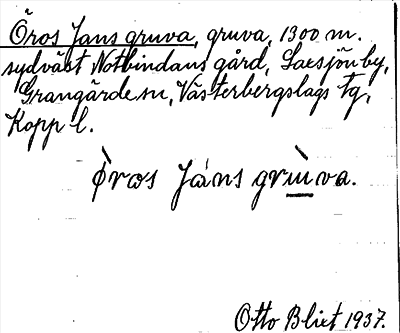 Öros Jans gruva, gruva, 1300 m.
sydväst Notbindans gård, Laesjön by,
Grangärde sn, Västerbergslags tg,
Kopp l.
Òros Jáns grùva.
Otto Blixt 1937.